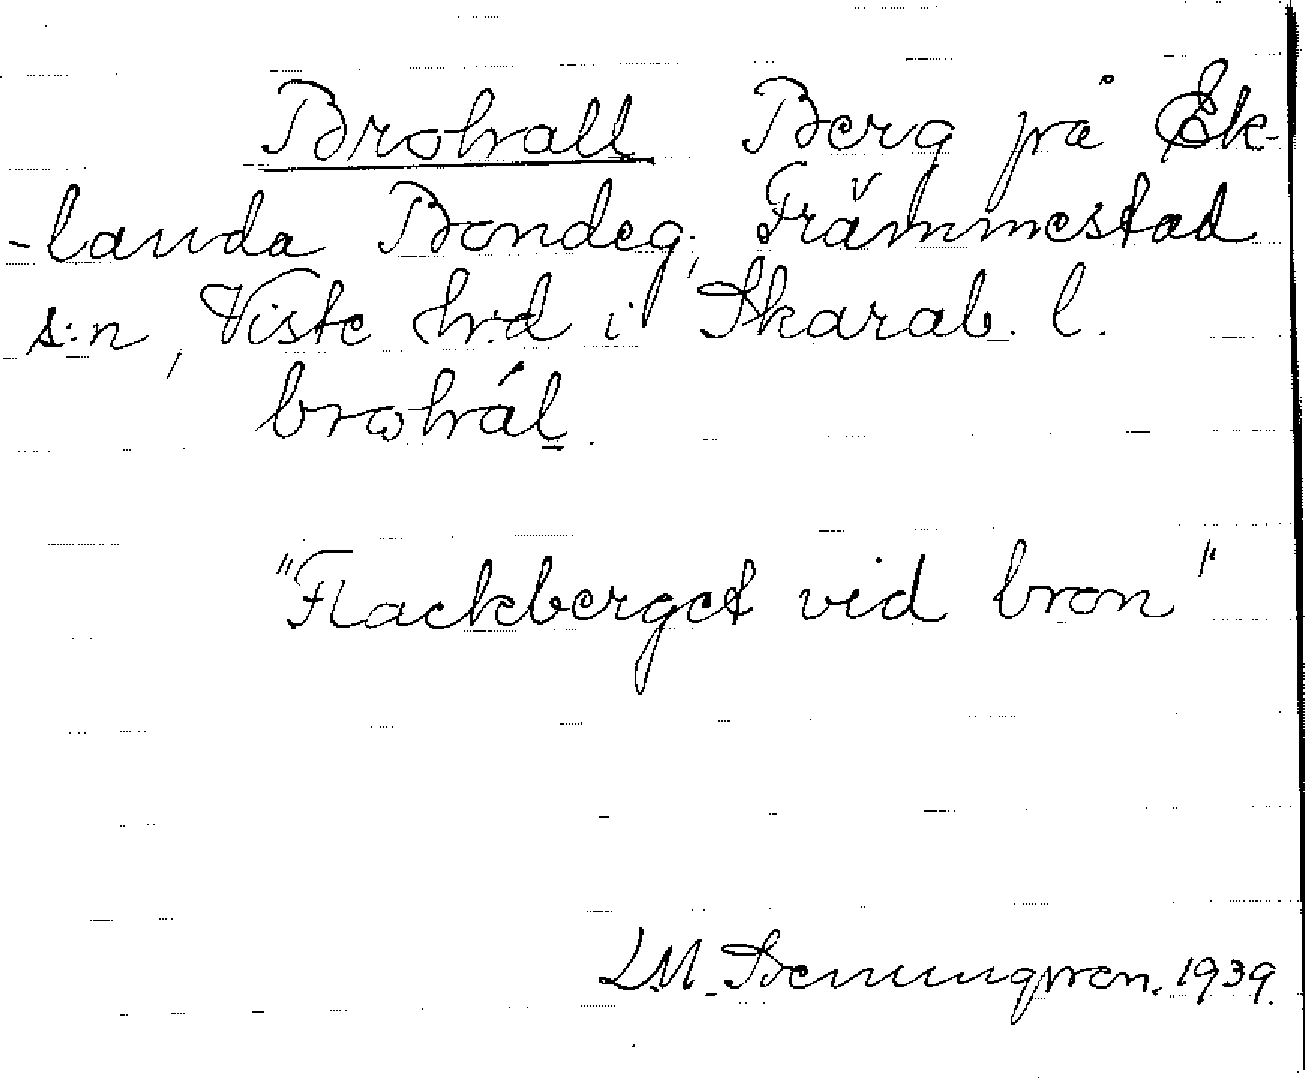 Brohall Berg på Ek-
-landa Bondeg., Främmestad
s:n, Viste h:d i Skarab. l.
brohál.
"Flackberget vid bron"
LM. 1939.